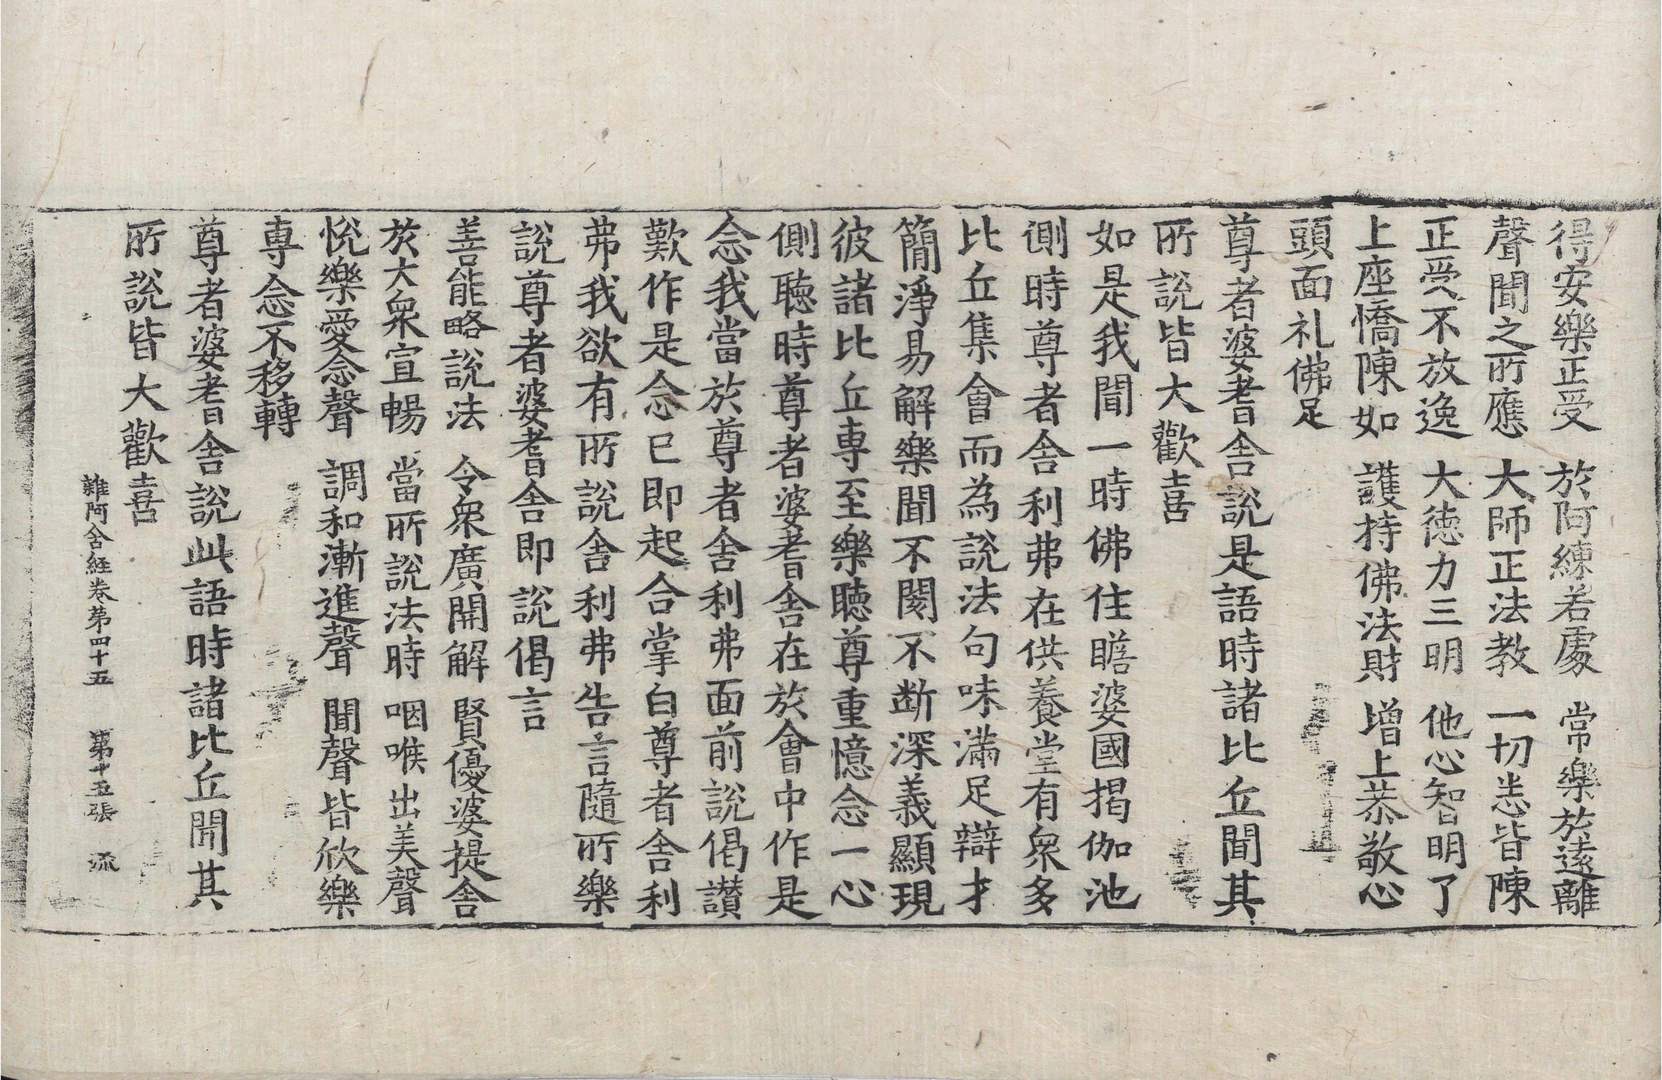 得安樂正受 於阿練若處 常樂於遠離
聲聞之所應 大師正法教 一切悉皆陳
正受不放逸 大德力三明 他心智明了
上座憍陳如 護持佛法財 增上恭敬心
頭面礼佛足
尊者婆耆舍說是語時諸比丘聞其
所說皆大歡喜
如是我聞一時佛住瞻婆國揭伽池
側時尊者舍利弗在供養堂有衆多
比丘集會而為說法句味滿足辯才
簡淨易解樂聞不閡不斷深義顯現
彼諸比丘專至樂聽尊重憶念一心
側聽時尊者婆耆舍在於會中作是
念我當於尊者舍利弗面前說偈讃
歎作是念已即起合掌白尊者舍利
弗我欲有所說舍利弗告言隨所樂
說尊者婆耆舍即說偈言
善能略說法 令衆廣開解 賢優婆提舍
於大衆宣暢 當所說法時 咽喉出美聲
悅樂愛念聲 調和漸進聲 聞聲皆欣樂
專念不移轉
尊者婆耆舍說此語時諸比丘聞其
所說皆大歡喜
雜阿含經卷第四十五 第十五張 流